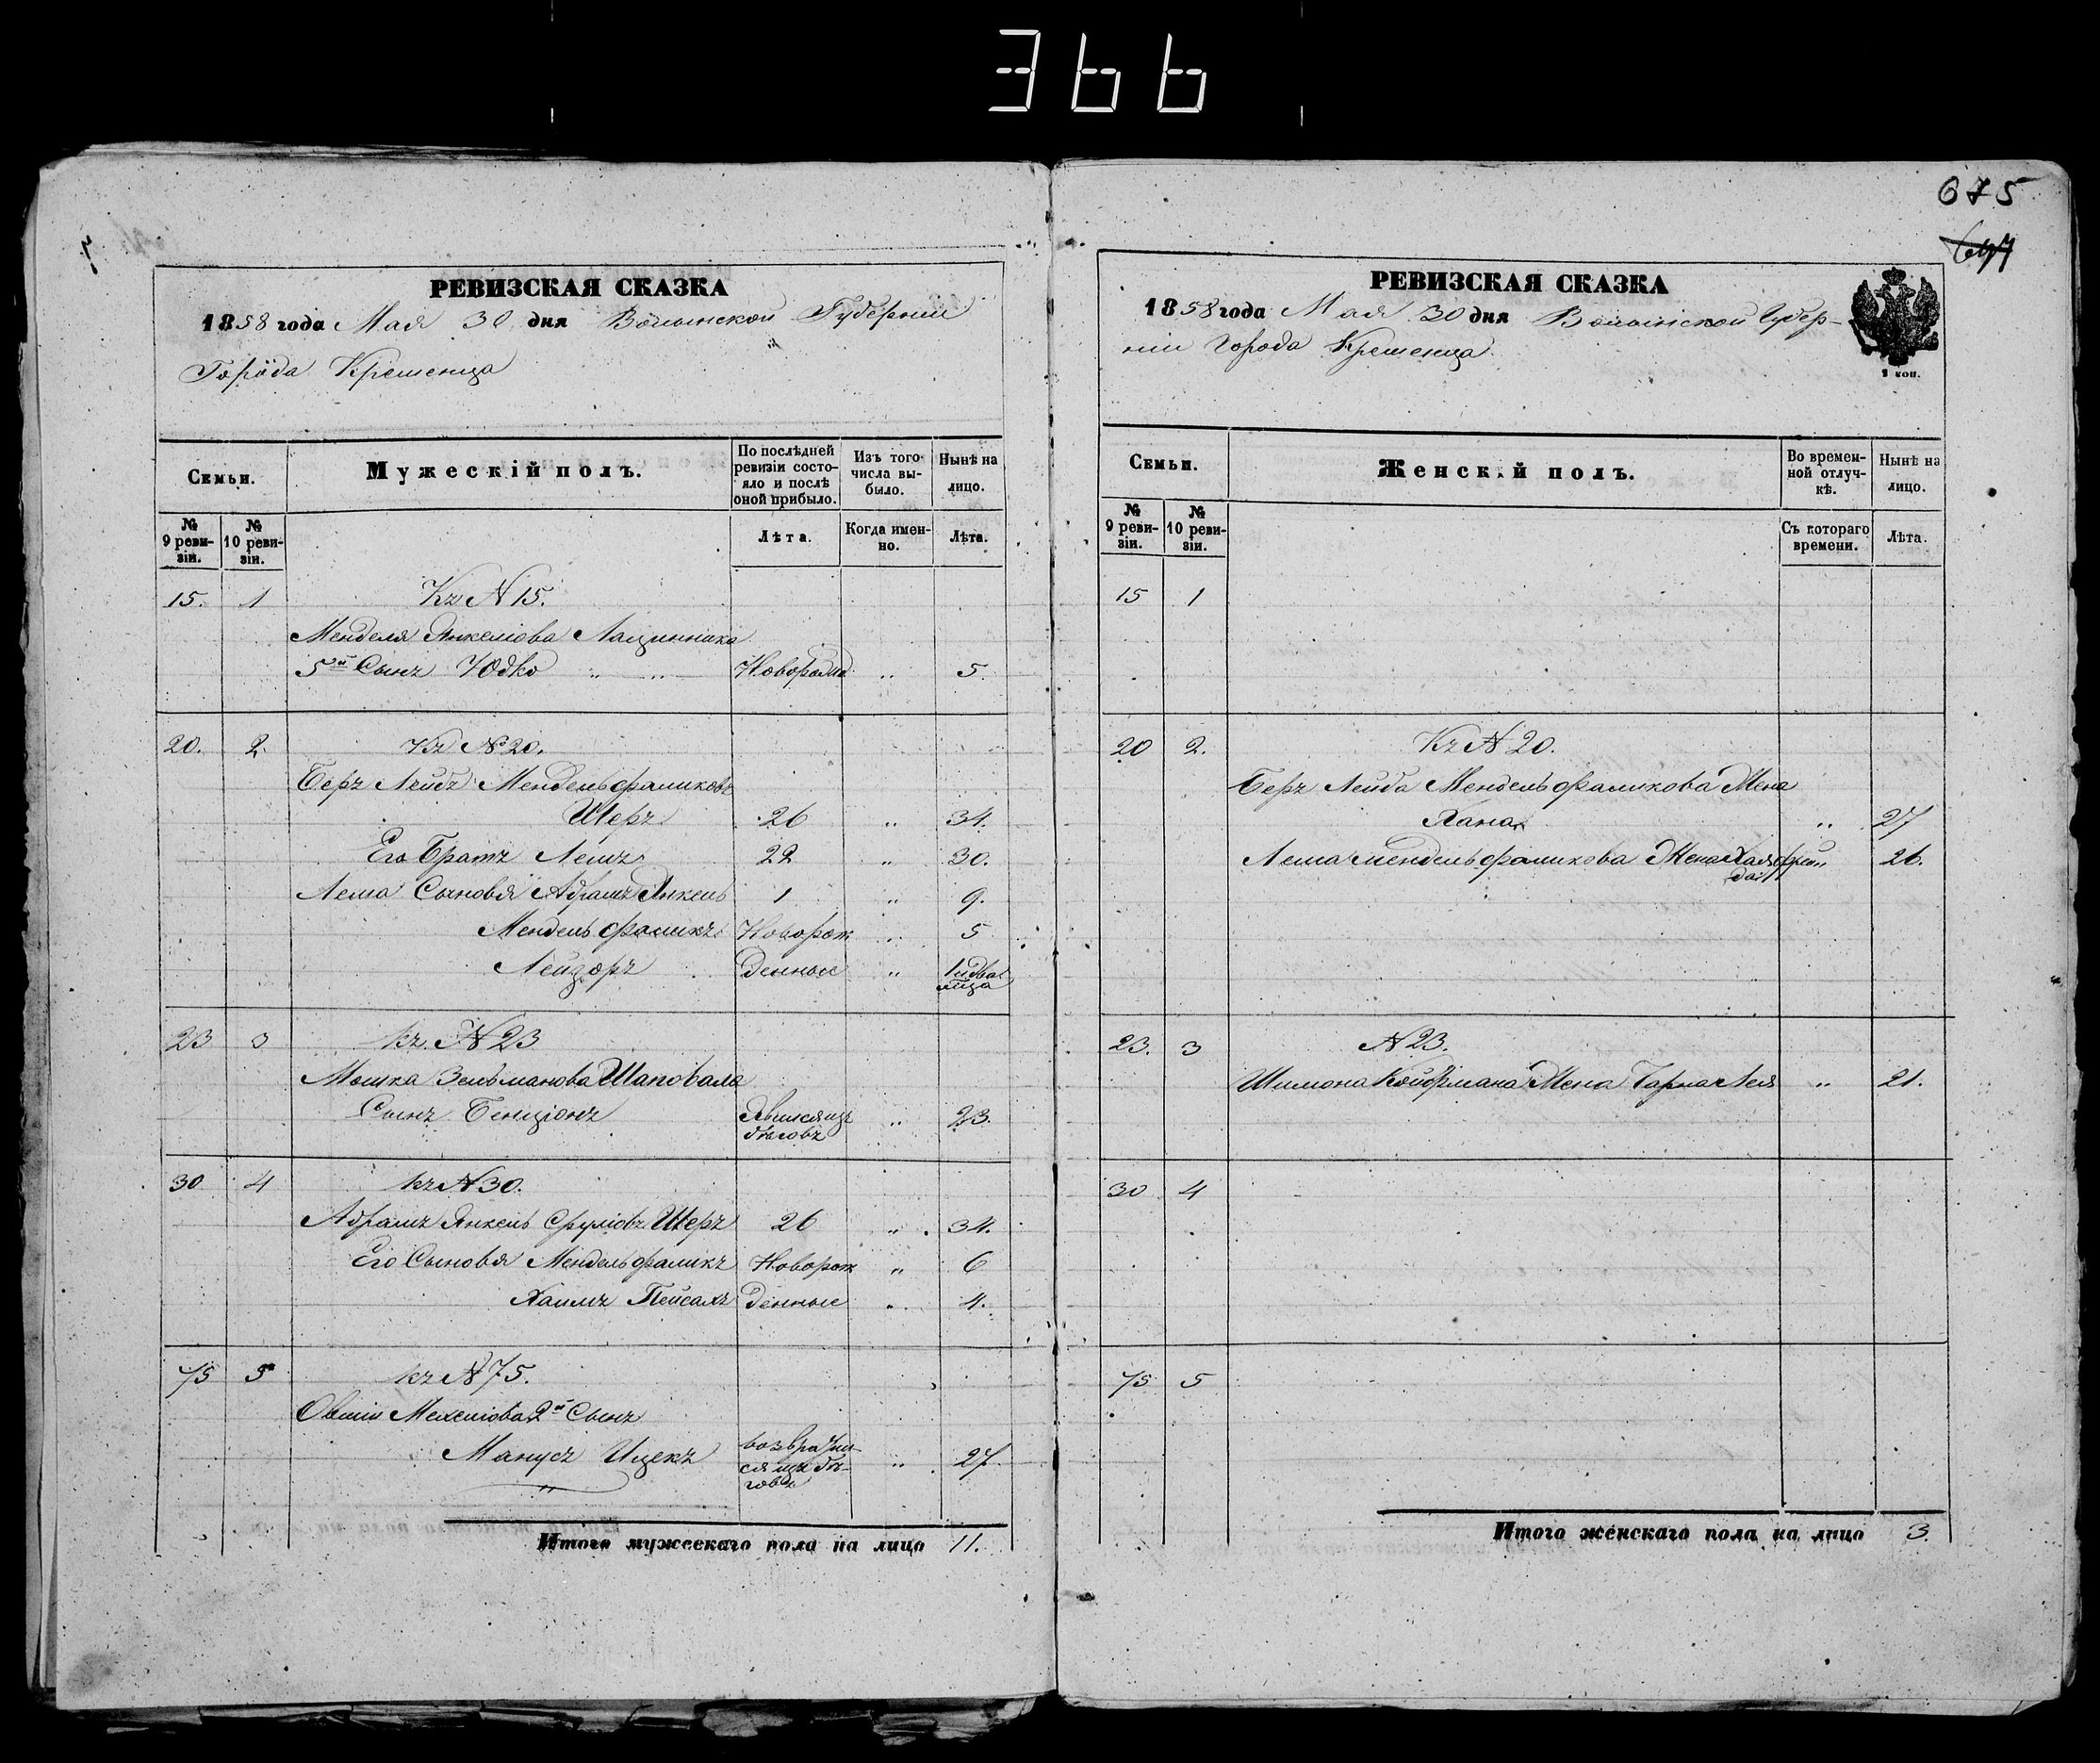 366
675
647
РЕВИЗСКАЯ СКАЗКА
1858 года Мая 30 дня Волынской Губерніи
Города Кременца
Семьи.
Мужескій полъ.
По послѣдней ревизіи состояло и послѣ оной прибыло.
Изъ того числа выбыло.
Нынѣ на лицо.
№ 9 ревизіи.
№ 10 ревизіи.
Лѣта.
Когда именно.
Лѣта.
15. 1 Къ № 15.
Менделя Янкеліова Лащинника
5й Сынъ Юдко " " Новорожд " 5
20. 2. Къ № 20.
Беръ Лейбъ Мендель фраликовъ
Шеръ 26 " 34.
Его Братъ Лемъ 22 " 30.
Лема Сыновья Абрамъ Янкель 1 " 9.
Мендель фраликъ Новорож " 5
Лейзоръ денные " 1 и два мѣца
23 3 къ № 23
Мошка Зельманова Шаповала
Сынъ Бенціонъ Явился изъ бѣговъ " 23.
30 4 къ № 30.
Абрамъ Янкель Сруліовъ Шеръ 26 " 34.
Его Сыновья Мендель фраликъ Новорож " 6
Хаимъ Пейсахъ денные " 4.
75 5 къ № 75.
Овшіи Мехеліова 2й Сынъ
Манусъ Ицекъ возвратился изъ бѣговъ " 27
Итого мужескаго пола на лицо 11.
РЕВИЗСКАЯ СКАЗКА
1858 года Мая 30 дня Волынской Губер-
ніи Города Кременца
1 коп.
Семьи.
Женскій полъ.
Во временной отлучкѣ.
Нынѣ на лицо.
№ 9 ревизіи.
№ 10 ревизіи.
Съ котораго времени.
Лѣта.
15 1
20 2. Къ № 20.
Беръ Лейба Мендель фраликова Жена
Хана " 27
Лема Мендель фраликова Жена Хая фрейда " 26.
23. 3 № 23.
Шимона Жена Лея " 21.
30 4
75 5
Итого женскаго пола на лицо 3.